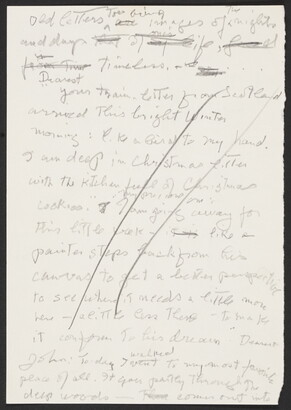 Old letters bring images of the nights
and days of life,
timeless, and
"Dearest
Your train letter from Scotland
arrived this bright winter
morning: like a bird to my hand.
I am deep in Christmas litter
with the kitchen full of Christmas
cookies." I am going away for
this little break - like a
painter steps back from his
canvas to get a better perspective
to see where it needs a little more
here - a little less there - to make
it conform to his dream" "Dearest
John: Today I walked to my most favorite
place of all. It goes partly through the
deep woods - comes out